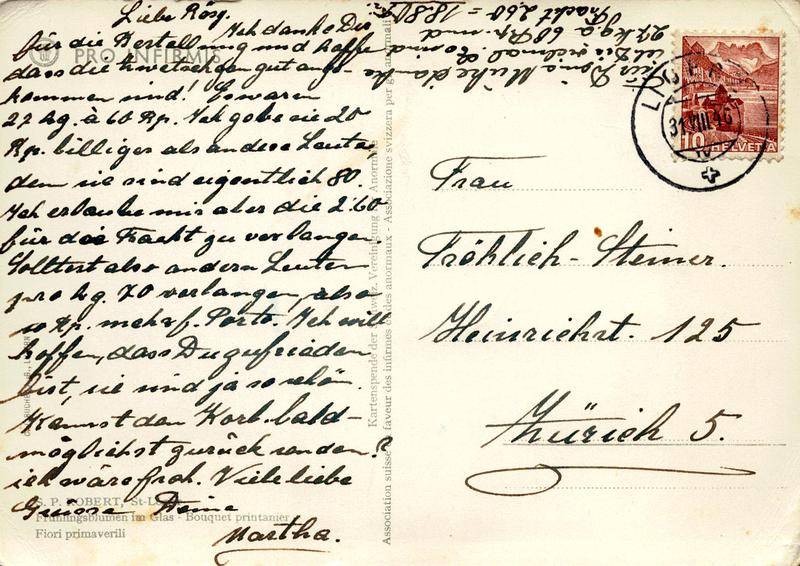 Liebe Rösy.
Ich danke Dir
für die Bestellung und hoffe
dass die Zwetschgen gut ange-
kommen sind! Es waren
27 kg. à 60 Rp. Ich gebe sie 20
Rp. billiger als andere Leute,
denn sie sind eigentlich 80.
Ich erlaube mir aber die 2.60
für die Fracht zu verlangen.
Solltest also andern Leuten
pro kg. 70 verlangen, also
10 Rp. mehr f. Porto. Ich will
hoffen, dass Du zufrieden
bist, sie sind ja so schön.
Kannst den Korb bald-
möglichst zurück senden?
ich wäre froh. Viele liebe
Grüsse Deine
Martha.
Für Deine Mühe danke
ich Dir vielmal.
27 kg. à 60 Rp. und
Fracht 2.60 = 18.80
PRO INFIRMIS
S. P. ROBERT, St-
Frühlingsblumen im Glas - Bouquet printanier
Fiori primaverili
Kartenspende der Schweiz. Vereinigung für Anormale
Association suisse en faveur des infirmes et des anormaux - Associazione svizzera per gli anormali
LUZERN
31.VIII.4
10 HELVETIA
Frau
Fröhlich-Steiner.
Heinrichst. 125
Zürich 5.